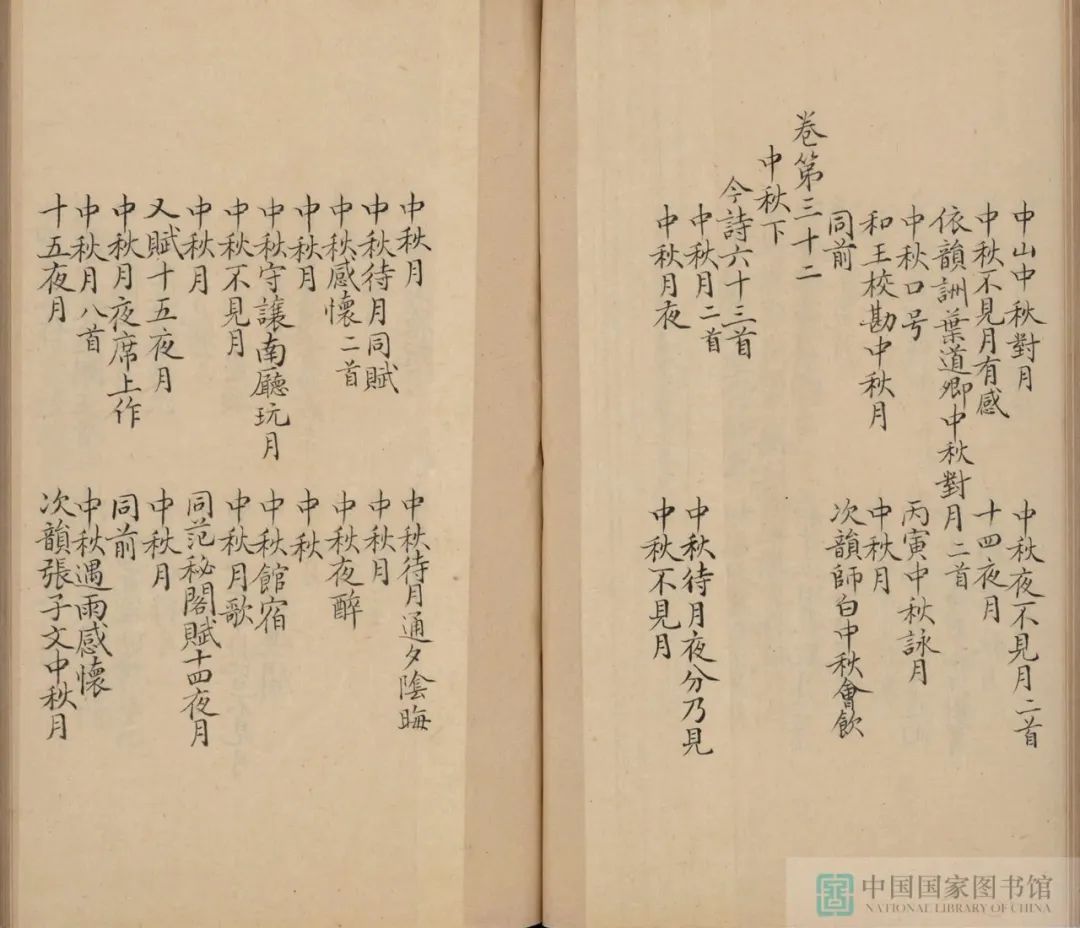 中山中秋對月 中秋夜不見月二首
中秋不見月有感 十四夜月
依韻詶葉道卿中秋對月二首
中秋口号 丙寅中秋詠月
和王校勘中秋月 中秋月
同前 次韻師白中秋會飲
卷第三十二
中秋下
今詩六十三首
中秋月二首 中秋待月夜分乃見
中秋月夜 中秋不見月
中秋月 中秋待月通夕陰晦
中秋待月同賦 中秋月
中秋感懷二首 中秋夜醉
中秋月 中秋
中秋守讓南廳玩月 中秋館宿
中秋不見月 中秋月歌
中秋月 同范秘閣賦十四夜月
又賦十五夜月 中秋月
中秋月夜席上作 同前
中秋月八首 中秋遇雨感懷
十五夜月 次韻張子文中秋月
中国国家图书馆
NATIONAL LIBRARY OF CHINA